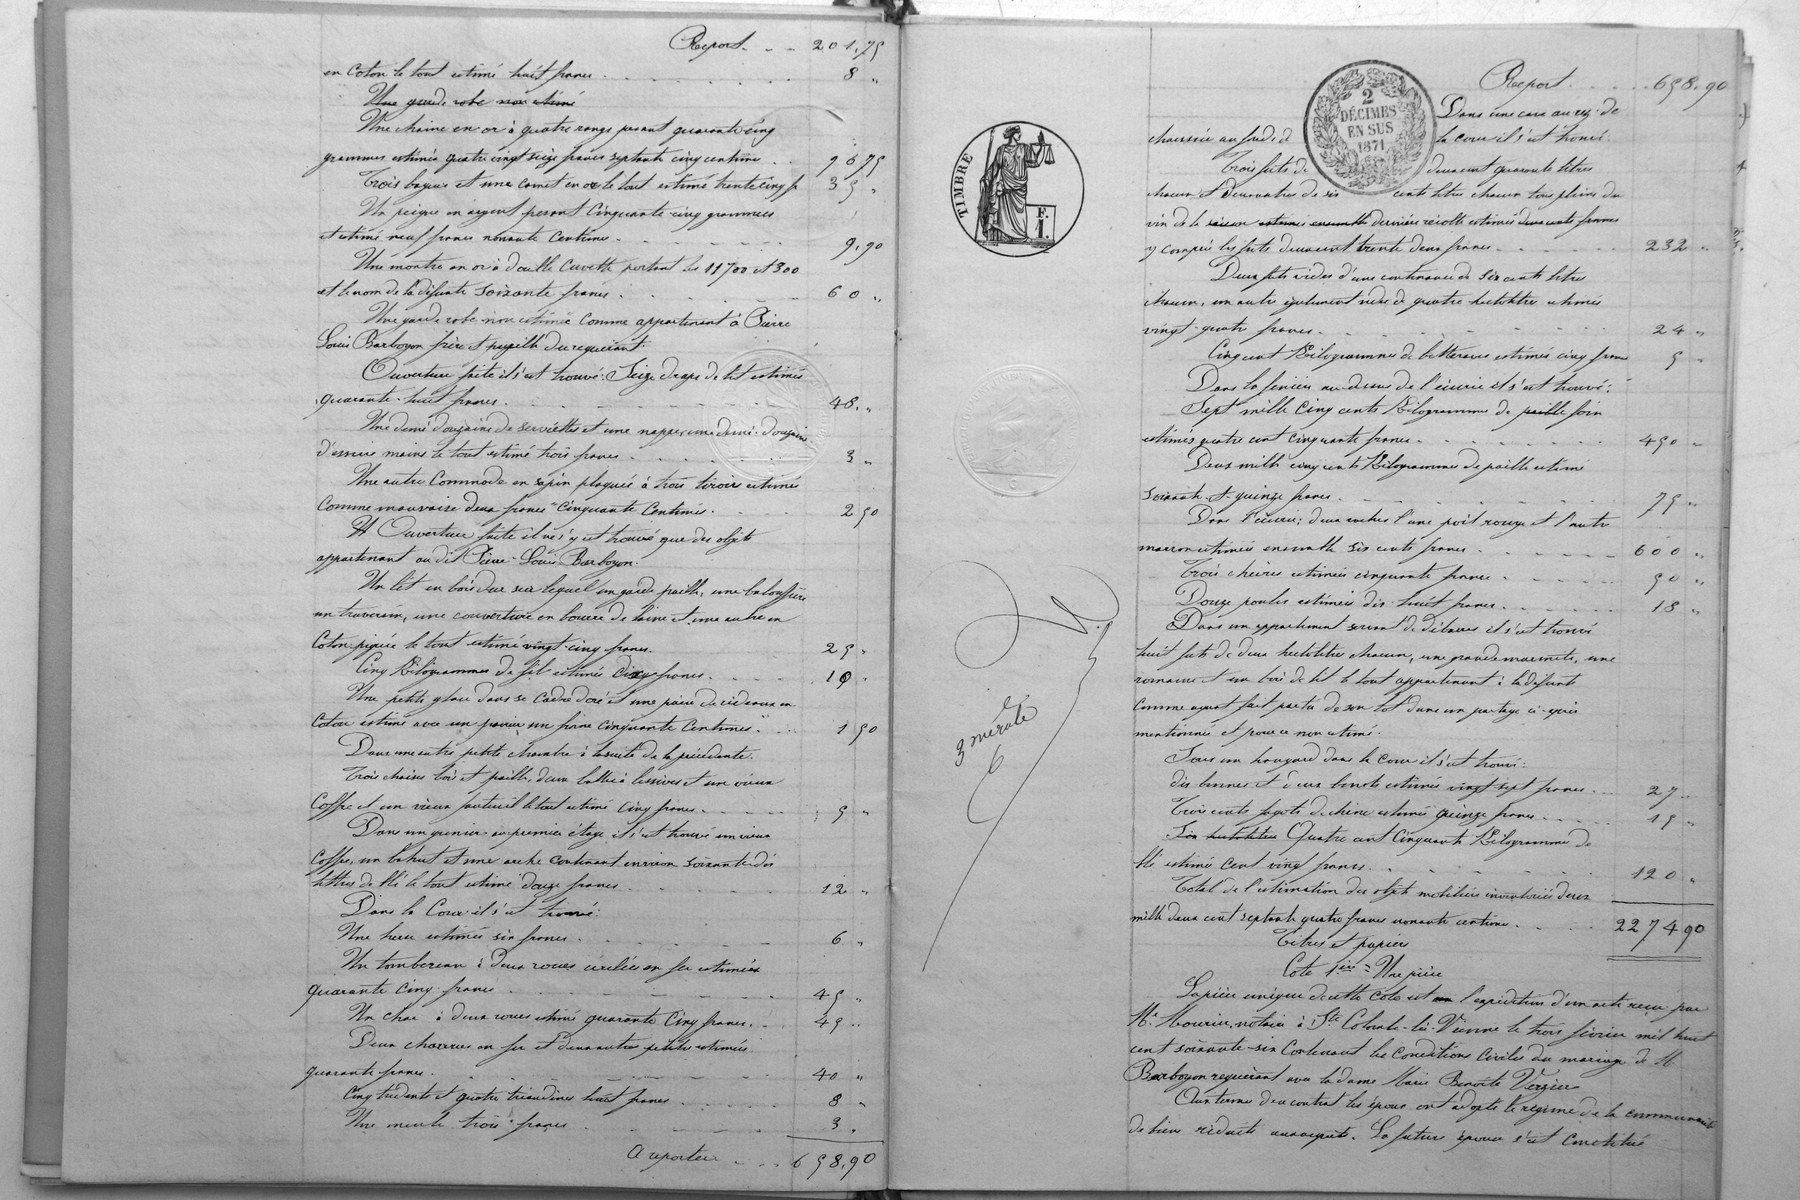 Report. . . 201,75
en Coton le tout estimé huit francs. 8 "
Une garde robe non estimé
Une chaine en or à quatre rangs pesant quarante cinq
grammes estimés quatre vingt seize francs septante cinq centime. 96 75
Trois bagues et une comet en or le tout estimé trente cinq f 35 "
Un peigne en argent pesant Cinquante cinq grammes
et estimé neuf francs nonante Centimes. 9,90
Une montre en or à double Cuvette portant les 11700 et 300
et le nom de la défunte soixante francs. 60 "
Une garde robe non estimée comme appartenant à Pierre
Louis Barboyon frère et pupille du requérant.
Ouverture faite il s'est trouvé: Seize draps de lit estimés
quarante-huit francs. 48. "
Une demi douzaine de serviettes et une nappe, une demi-douzaine
d'essuie mains le tout estimé trois francs. 3 "
Une autre Commode en sapin plaquée à trois tiroirs estimée
Comme mauvaise deux francs Cinquante Centimes. 2 50
Ouverture faite il ne s'y est trouvé que des objets
appartenant au dit Pierre-Louis Barboyon.
Un lit en bois dur sur lequel un garde paille, une balouffière
un traversin, une couverture en bourre de laine et une autre en
Coton piquée le tout estimé vingt-cinq francs. 25 "
Cinq Kilogrammes de fil estimés dix francs. 10 "
Une petite glace dans se Cadre doré et une paire de rideaux en
Coton estimé avec un panier un franc Cinquante Centimes. 1 50
Dans une autre petite chambre à la suite de la précédente.
Trois chaises bois et paille, deux battes à lessives et un vieux
Coffre et un vieux fauteuil le tout estimé cinq francs. 5 "
Dans un grenier au premier étage il s'est trouvé un vieux
Coffre, un bahut et une arche Contenant environ soixante-dix
littres de blé le tout estimé douze francs. 12 "
Dans la Cour il s'est trouvé:
Une herse estimée six francs. 6 "
Un tombereau à Deux roues cerclées en fer estimées
quarante Cinq francs 45 "
Un char à deux roues estimé quarante Cinq francs. 45 "
Deux charrues en fer et deux autres petites estimées
quarante francs. 40 "
Cinq tridents et quatre triandines huit francs 8 "
Une meule trois francs 3 "
A reporter . . . 658,90
TIMBRE
F.
1.
2
DÉCIMES
EN SUS
1871
3 me rôle
Report. 658,90
Dans une cave au rez-de
chaussée au fond de la cour il s'est trouvé.
Trois futs de deux cent quarante litres
chacun et deux autres de six cents litres chacun tous pleins du
vin de la dernière récolte estimés deux cents francs
y compris les futs deux cent trente deux francs. 232 "
Deux futs vides d'une contenance de six cents litres
chacun, un autre également vide de quatre hectolitres estimés
vingt-quatre francs. 24 "
Cinq cent Kilogrammes de betteraves estimés cinq francs 5 "
Dans la fenière au dessus de l'écurie il s'est trouvé:
Sept mille Cinq cents Kilogrammes de paille foin
estimés quatre cent Cinquante francs. 450 "
Deux mille cinq cents Kilogrammes de paille estimé
Soixante-et-quinze francs. 75 "
Dans l'écurie: deux vaches l'une poil rouge et l'autre
marron estimées ensemble six cents francs. 600 "
Trois chèvres estimées cinquante francs. 50 "
Douze poules estimées dix-huit francs. 18 "
Dans un appartement servant de débarras il s'est trouvé
huit futs de deux hectolitres chacun, une grande marmite, une
romaine et un bois de lit le tout appartenant à la défunte
Comme ayant fait partie de son lot dans un partage ci-après
mentionné et pour ce non estimé.
Sous un hangard dans la Cour il s'est trouvé:
dix bennes et deux benots estimés vingt sept francs. 27 "
Trois cents fagots de chêne estimés quinze francs 15 "
Six hectolitres Quatre cent Cinquante Kilogrammes de
blé estimés Cent vingt francs. 120 "
Total de l'estimation des objets mobiliers inventoriés deux
mille deux cent septante quatre francs nonante centimes. 2274 90
Titres et papiers
Cote 1ère = Une pièce
La pièce unique de cette Cote est l'expédition d'un acte reçu par
Me Mourier, notaire à Ste Colombe-les-Vienne le trois février mil huit
cent soixante-six Contenant les Conditions Civiles du mariage de M.
Barboyon requérant avec la dame Marie Benoîte Verzier
Aux termes de ce contrat les époux ont adopté le régime de la communauté
de biens réduite aux acquêts. La future épouse s'est Constitué